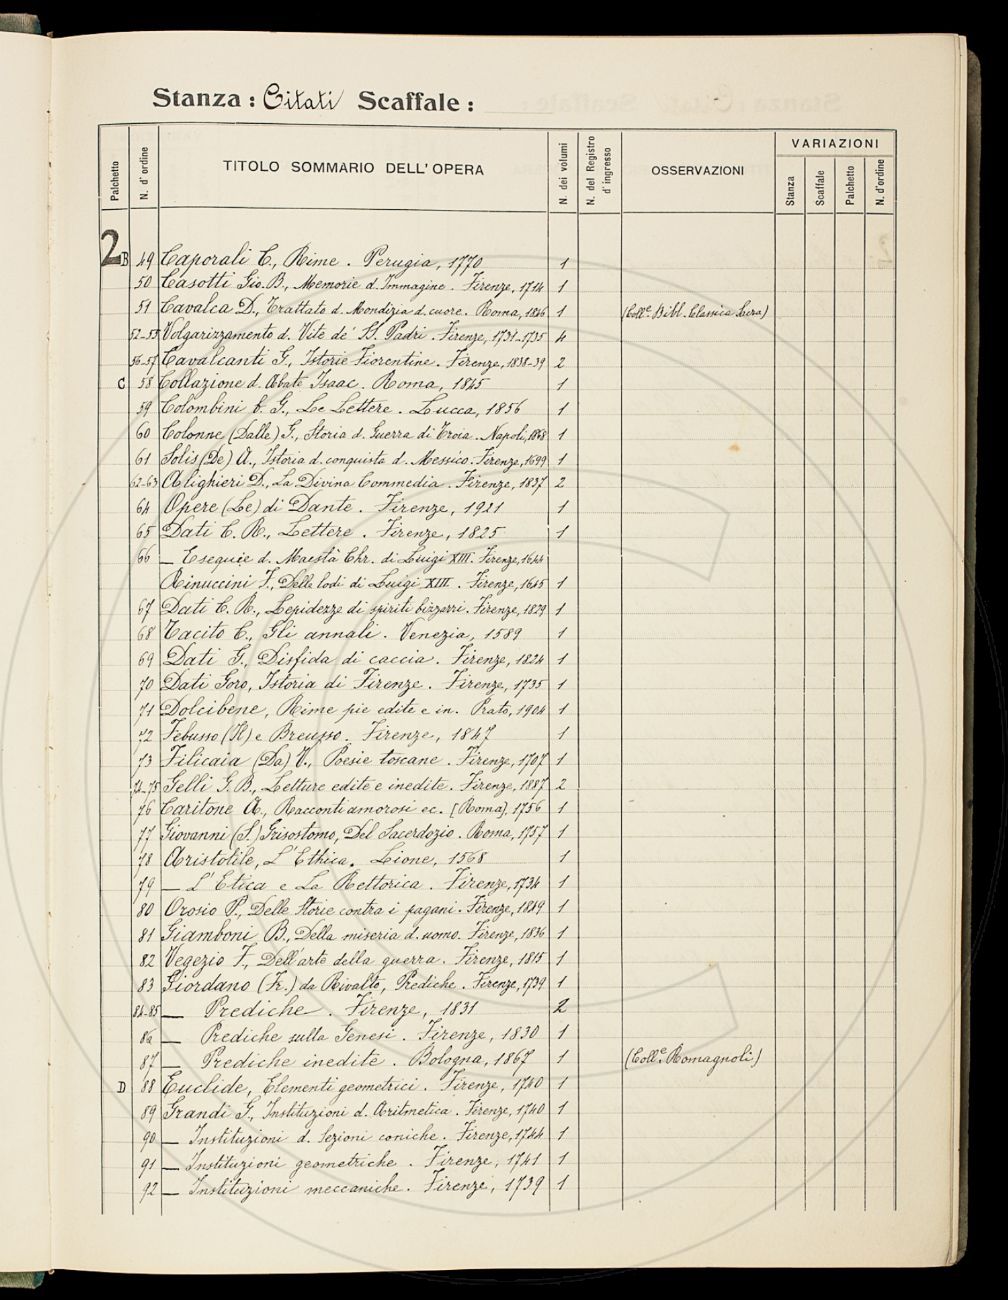 Stanza : Citati Scaffale :
Palchetto N. d'ordine TITOLO SOMMARIO DELL'OPERA N. dei volumi N. del Registro d'ingresso OSSERVAZIONI VARIAZIONI
Stanza Scaffale Palchetto N. d'ordine
2 B 49 Caporali C., Rime. Perugia, 1770 1
50 Casotti Gio. B., Memorie d. Immagine. Firenze, 1714 1
51 Cavalca D., Trattato d. Mondizia d. cuore. Roma, 1846 1 (Coll.e Bibl. Classica Sacra)
52-55 Volgarizzamento d. Vite de' SS. Padri. Firenze, 1731-1735 4
56-57 Cavalcanti G., Istorie Fiorentine. Firenze, 1838-39 2
C 58 Collazione d. Abate Isaac. Roma, 1845 1
59 Colombini b. G., Le Lettere. Lucca, 1856 1
60 Colonne (Dalle) G., Storia d. Guerra di Troia. Napoli, 1868 1
61 Solis (De) A., Istoria d. conquista d. Messico. Firenze, 1699 1
62-63 Alighieri D., La Divina Commedia. Firenze, 1837 2
64 Opere (Le) di Dante. Firenze, 1921 1
65 Dati C. R., Lettere. Firenze, 1825 1
66 — Esequie d. Maestà Chr. di Luigi XIII. Firenze, 1644
Rinuccini F., Delle lodi di Luigi XIII. Firenze, 1645 1
67 Dati C. R., Lepidezze di spiriti bizzarri. Firenze, 1829 1
68 Tacito C., Gli annali. Venezia, 1589 1
69 Dati G., Disfida di caccia. Firenze, 1824 1
70 Dati Goro, Istoria di Firenze. Firenze, 1735 1
71 Dolcibene, Rime pie edite e in. Prato, 1904 1
72 Febusso (Il) e Breusso. Firenze, 1847 1
73 Filicaia (Da) V., Poesie toscane. Firenze, 1707 1
74-75 Gelli G. B., Letture edite e inedite. Firenze, 1887 2
76 Caritone A., Racconti amorosi ec. [Roma], 1756 1
77 Giovanni (S.) Grisostomo, Del Sacerdozio. Roma, 1757 1
78 Aristotile, L'Ethica. Lione, 1568 1
79 — L'Etica e La Rettorica. Firenze, 1734 1
80 Orosio P., Delle Storie contra i pagani. Firenze, 1849 1
81 Giamboni B., Della miseria d. uomo. Firenze, 1836 1
82 Vegezio F., Dell'arte della guerra. Firenze, 1815 1
83 Giordano (Fr.) da Rivalto, Prediche. Firenze, 1739 1
84-85 — Prediche. Firenze, 1831 2
86 — Prediche sulla Genesi. Firenze, 1830 1
87 — Prediche inedite. Bologna, 1867 1 (Coll.e Romagnoli)
D 88 Euclide, Elementi geometrici. Firenze, 1740 1
89 Grandi G., Instituzioni d. Aritmetica. Firenze, 1740 1
90 — Instituzioni d. Sezioni coniche. Firenze, 1744 1
91 — Instituzioni geometriche. Firenze, 1741 1
92 — Instituzioni meccaniche. Firenze, 1739 1